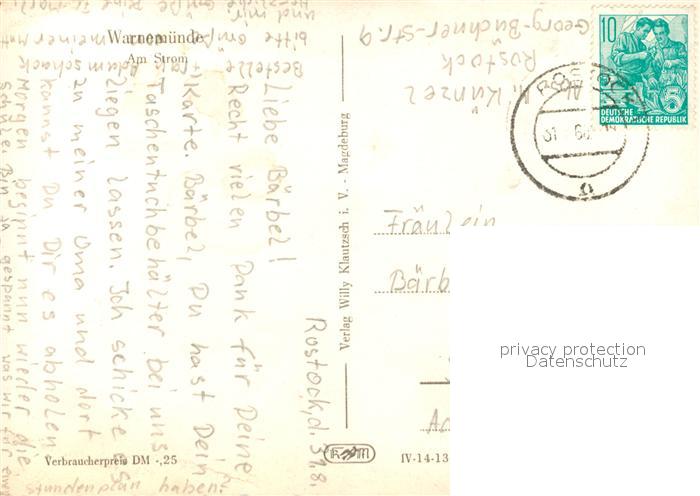 Warnemünde
Am Strom
Rostock, d. 31.8.
Liebe Bärbel!
Recht vielen Dank für Deine
Karte. Bärbel, Du hast Dein
Taschentuchbehälter bei uns
liegen lassen. Ich schicke es
zu meiner Oma und dort
kannst Du Dir es abholen.
Morgen beginnt nun wieder die
Schule. Bin ja gespannt was wir für ein
stundenplan haben.
Bestelle
bitte
und mir
Künzel
Rostock
Georg-Büchner-Str. 9
Verlag Willy Klautzsch i. V. - Magdeburg
10
5
DEUTSCHE
DEMOKRATISCHE REPUBLIK
Fräulein
Bärb
privacy protection
Datenschutz
Verbraucherpreis DM -,25
IV-14-13